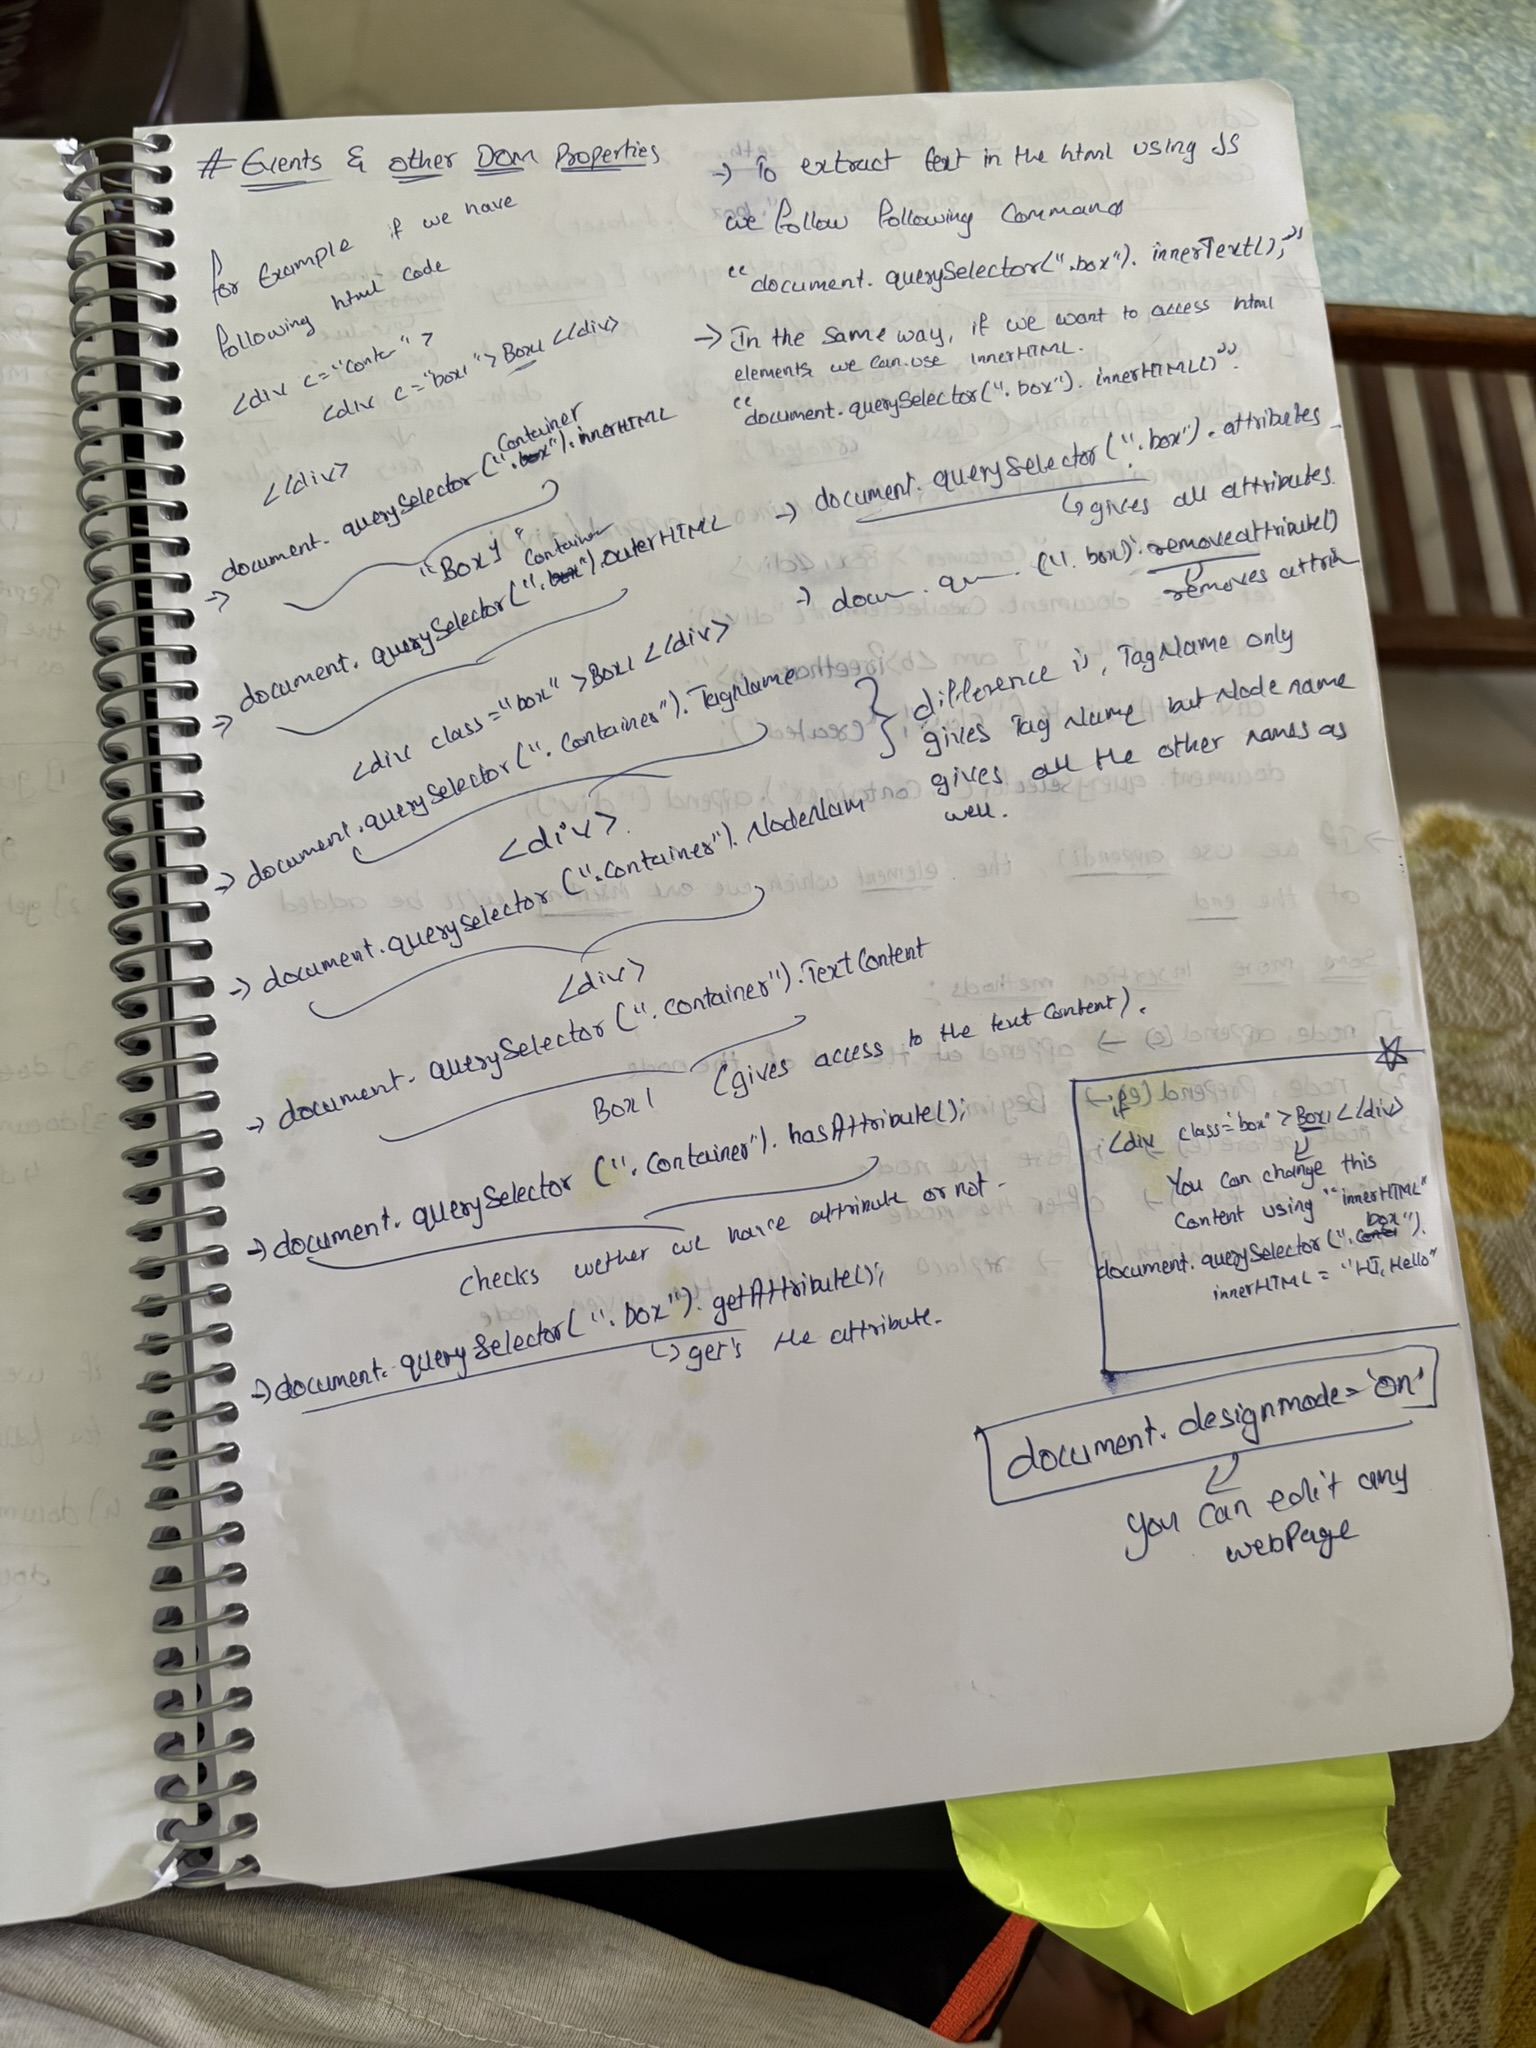 # Events & other DOM Properties
for Example if we have
following html code
<div c="conter">
<div c="box1">Box1</div>
</div>
→ document.querySelector(".box container").innerHTML
"Box 1"
→ document.querySelector(".box container").outerHTML
<div class="box">Box1</div>
→ document.querySelector(".container").TagName
<div>
→ document.querySelector(".container").NodeNam
<div>
} difference is, TagName only
gives Tag Name but Node name
gives all the other names as
well.
→ document.querySelector(".container").TextContent
Box1 (gives access to the text content).
→ document.querySelector(".container").hasAttribute();
checks wether we have attribute or not.
→ document.querySelector(".box").getAttribute();
↳ get's the attribute.
→ To extract text in the html using JS
we follow following Command
"document.querySelector(".box").innerText();"
→ In the same way, if we want to access html
elements we can use innerHTML.
"document.querySelector(".box").innerHTML()".
→ document.querySelector(".box").attributes
↳ gives all attributes.
→ docu. qu . (". box1)".removeattribute()
removes attrib
☆
if
<div class="box">Box1</div>
You can change this
content using "innerHTML"
box
document.querySelector(". ").
innerHTML = "HI, Hello"
document.designmode='on'
you can edit any
webPage